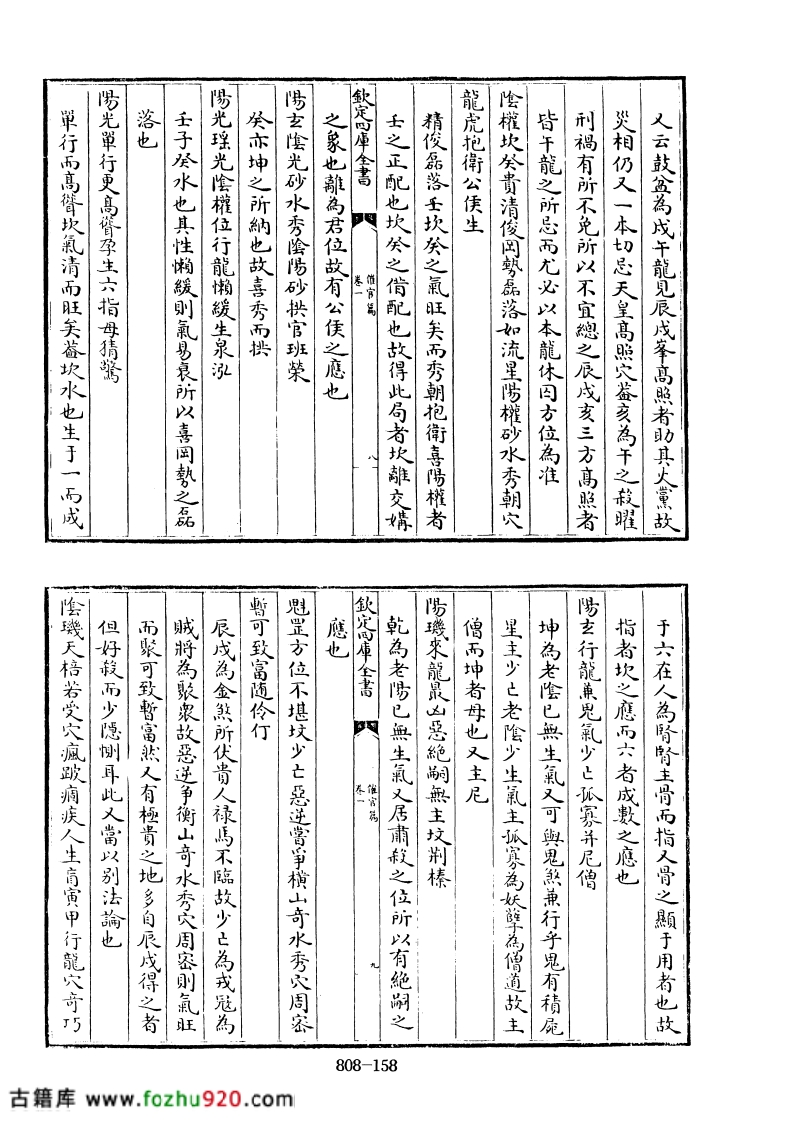 又云鼓盆為戍午龍見辰戍峯高照者助其火黨故
災相仍又一本切忌天皇高照穴葢亥為午之殺曜
刑禍有所不免所以不宜總之辰戍亥三方高照者
皆午龍之所忌而尤必以本龍休囚方位為准
陰權坎癸貴清俊岡勢磊落如流星陽權砂水秀朝穴
龍虎抱衛公侯生
精俊磊落壬坎癸之氣旺矣而秀朝抱衛喜陽權者
壬之正配也坎癸之借配也故得此局者坎離交媾
欽定四庫全書
催官篇
卷一
八
之象也離為君位故有公侯之應也
陽玄陰光砂水秀陰陽砂拱官班榮
癸亦坤之所納也故喜秀而拱
陽光瑶光陰權位行龍懶緩生泉泓
壬子癸水也其性懶緩則氣易衰所以喜岡勢之磊
落也
陽光單行更高聳孕生六指母猜驚
單行而高聳坎氣清而旺矣葢坎水也生于一而成
于六在人為腎腎主骨而指又骨之顯于用者也故
指者坎之應而六者成數之應也
陽玄行龍兼鬼氣少亡孤寡并尼僧
坤為老陰已無生氣又可與鬼煞兼行乎鬼有積屍
星主少亡老陰少生氣主孤寡為妖孽為僧道故主
僧而坤者母也又主尼
陽璣來龍最凶惡絶嗣無主坟荆榛
乾為老陽已無生氣又居肅殺之位所以有絶嗣之
欽定四庫全書
催官篇
卷一
九
應也
魁罡方位不堪坟少亡惡逆嘗爭橫山奇水秀穴周密
暫可致富随伶仃
辰戍為金煞所伏貴人禄馬不臨故少亡為戎冦為
賊將為聚衆故惡逆爭衡山奇水秀穴周密則氣旺
而聚可致暫富然又有極貴之地多自辰戍得之者
但好殺而少隱惻耳此又當以别法論也
陰璣天棓若受穴瘋跛痼疾人生肓寅甲行龍穴奇巧
808-158
古籍库 www.fozhu920.com